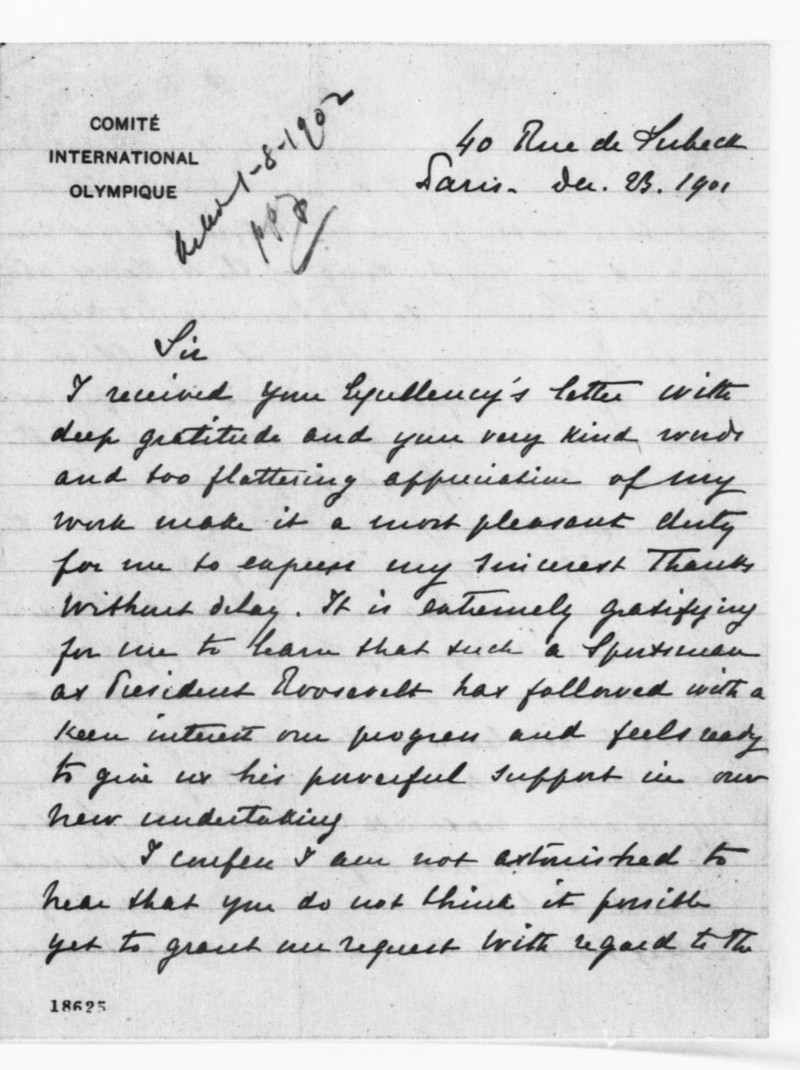 COMITÉ
INTERNATIONAL
OLYMPIQUE
1-8-1902
40 Rue de Lubeck
Paris. Dec. 23. 1901
Sir
I received your Excellency's letter with
deep gratitude and your very kind words
and too flattering appreciation of my
work make it a most pleasant duty
for me to express my sincerest thanks
without delay. It is extremely gratifying
for me to learn that such a Sportsman
as President Roosevelt has followed with a
keen interest our progress and feels ready
to give us his powerful support in our
new undertaking
I confess I am not astonished to
hear that you do not think it possible
yet to grant our request with regard to the
18625